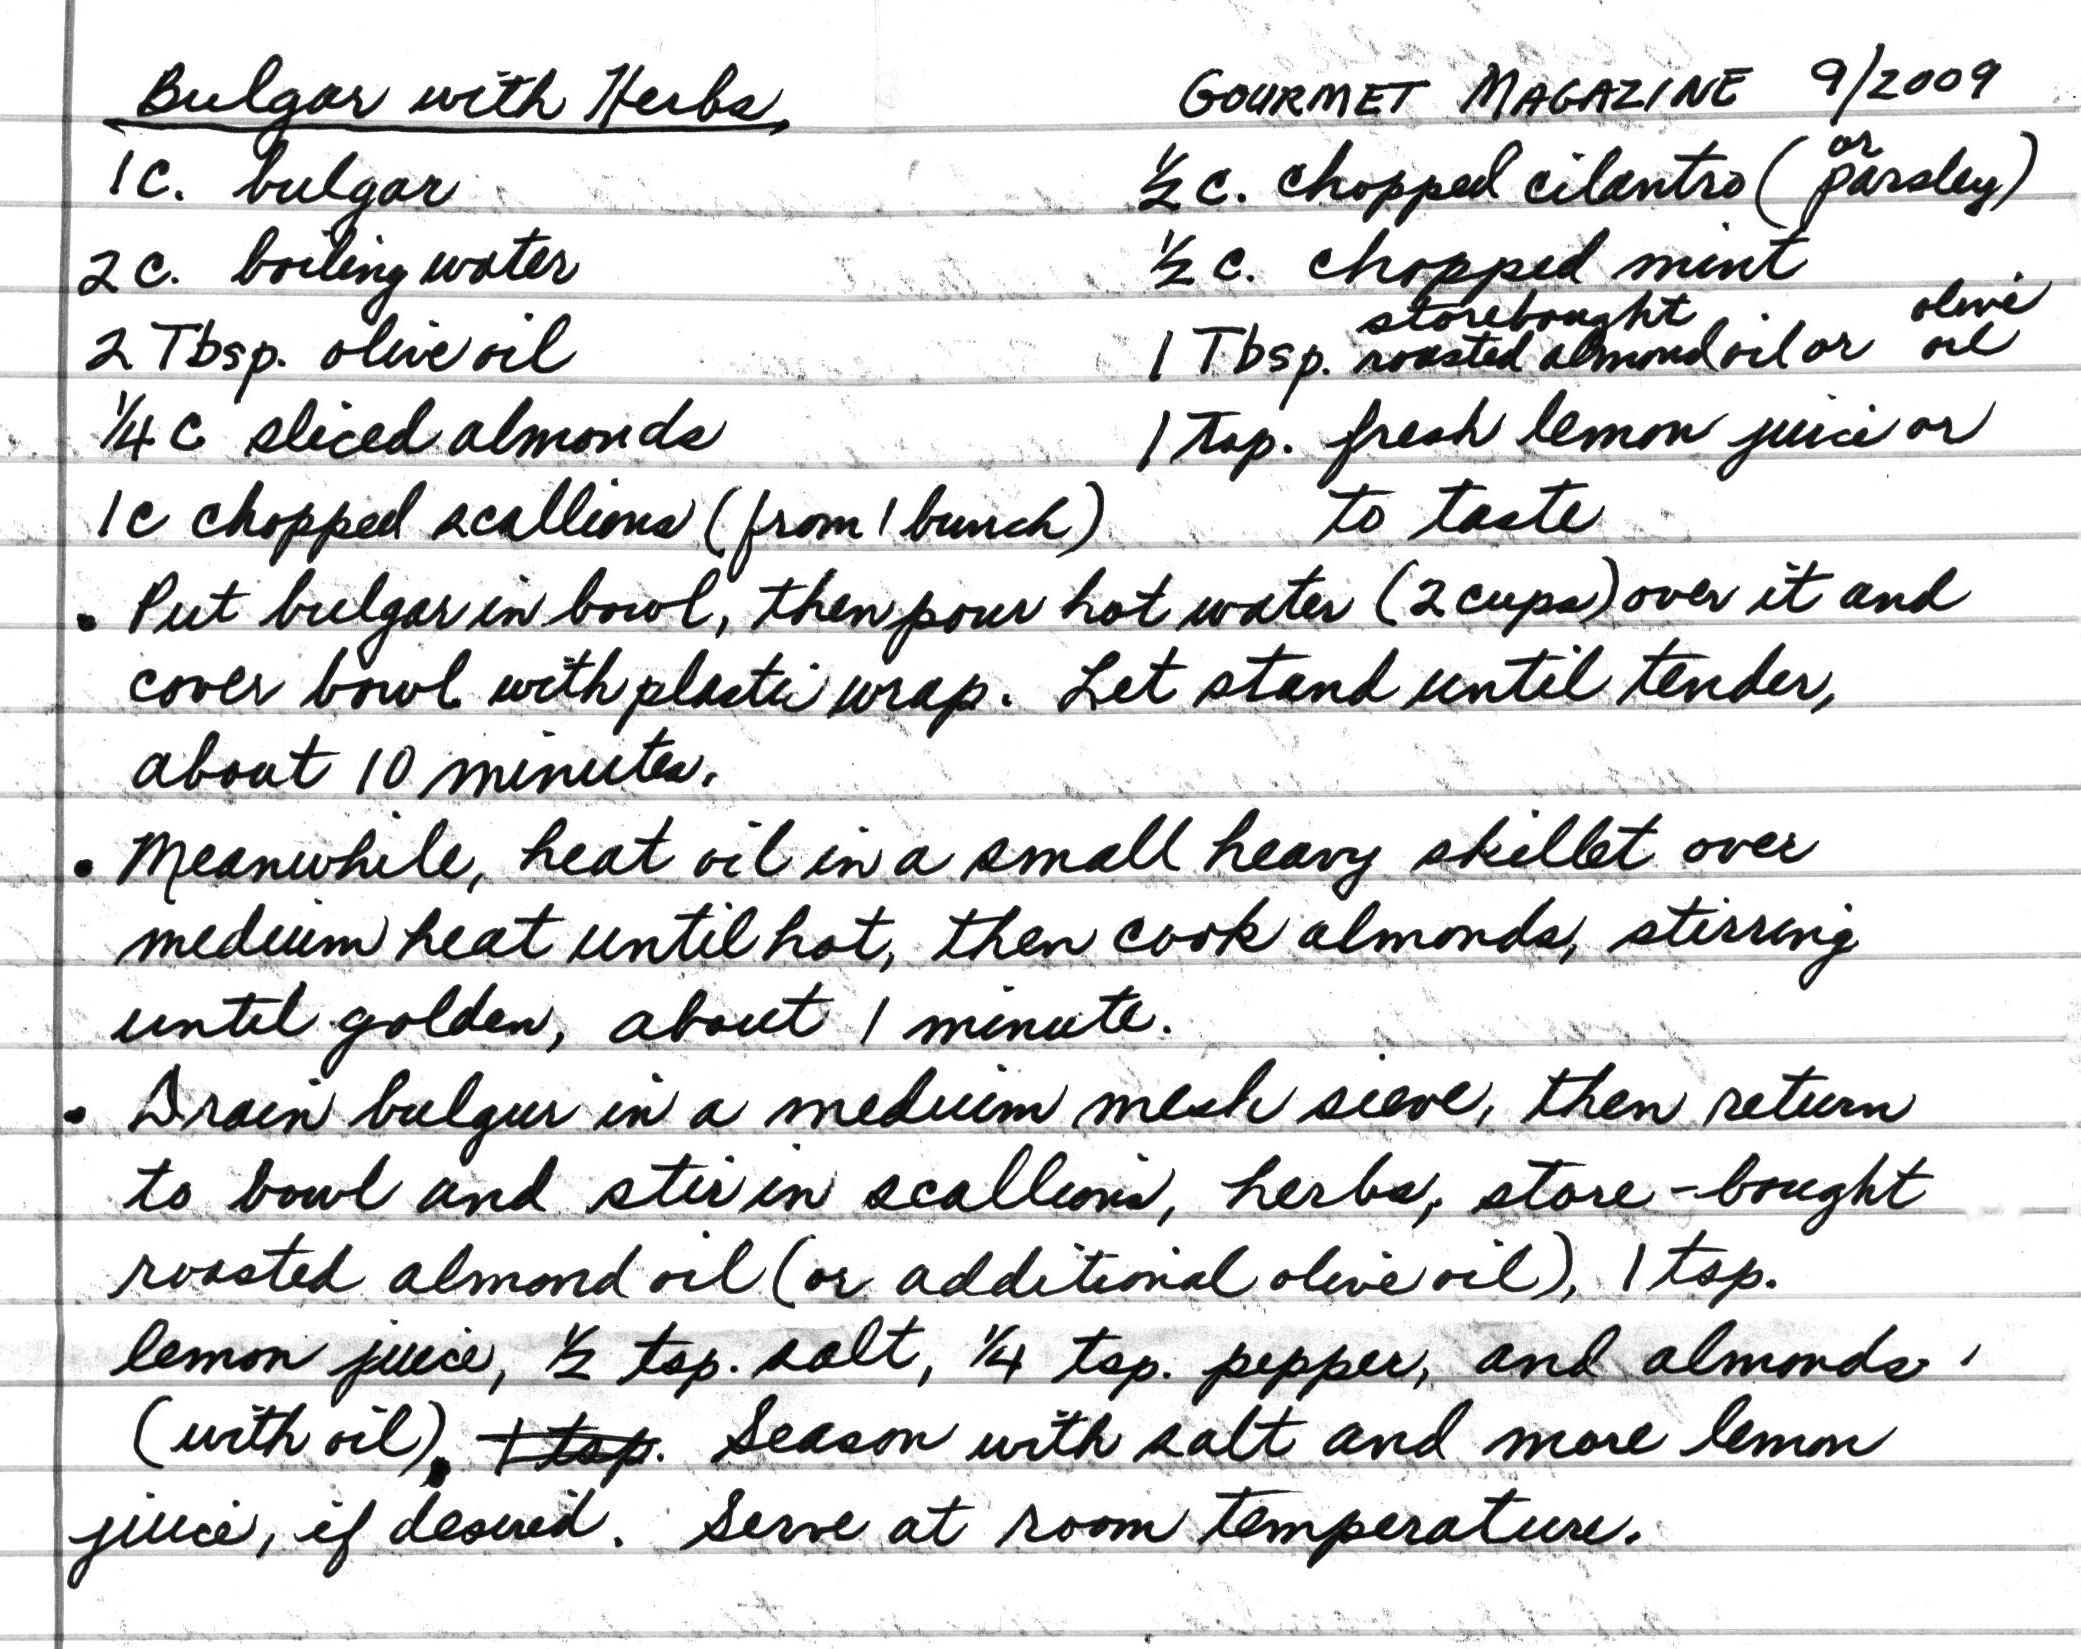 Bulgar with Herbs, GOURMET MAGAZINE 9/2009
1c. bulgar
2c. boiling water
2 Tbsp. olive oil
1/4 c sliced almonds
1c chopped scallions (from 1 bunch)
1/2 c. chopped cilantro (or parsley)
1/2 c. chopped mint
1 Tbsp. storebought roasted almond oil or olive oil
1 tsp. fresh lemon juice or
to taste
• Put bulgar in bowl, then pour hot water (2 cups) over it and
cover bowl with plastic wrap. Let stand until tender,
about 10 minutes.
• Meanwhile, heat oil in a small heavy skillet over
medium heat until hot, then cook almonds, stirring
until golden, about 1 minute.
• Drain bulgur in a medium mesh sieve, then return
to bowl and stir in scallions, herbs, store-bought
roasted almond oil (or additional olive oil), 1 tsp.
lemon juice, 1/2 tsp. salt, 1/4 tsp. pepper, and almonds
(with oil). 1 tsp. Season with salt and more lemon
juice, if desired. Serve at room temperature.